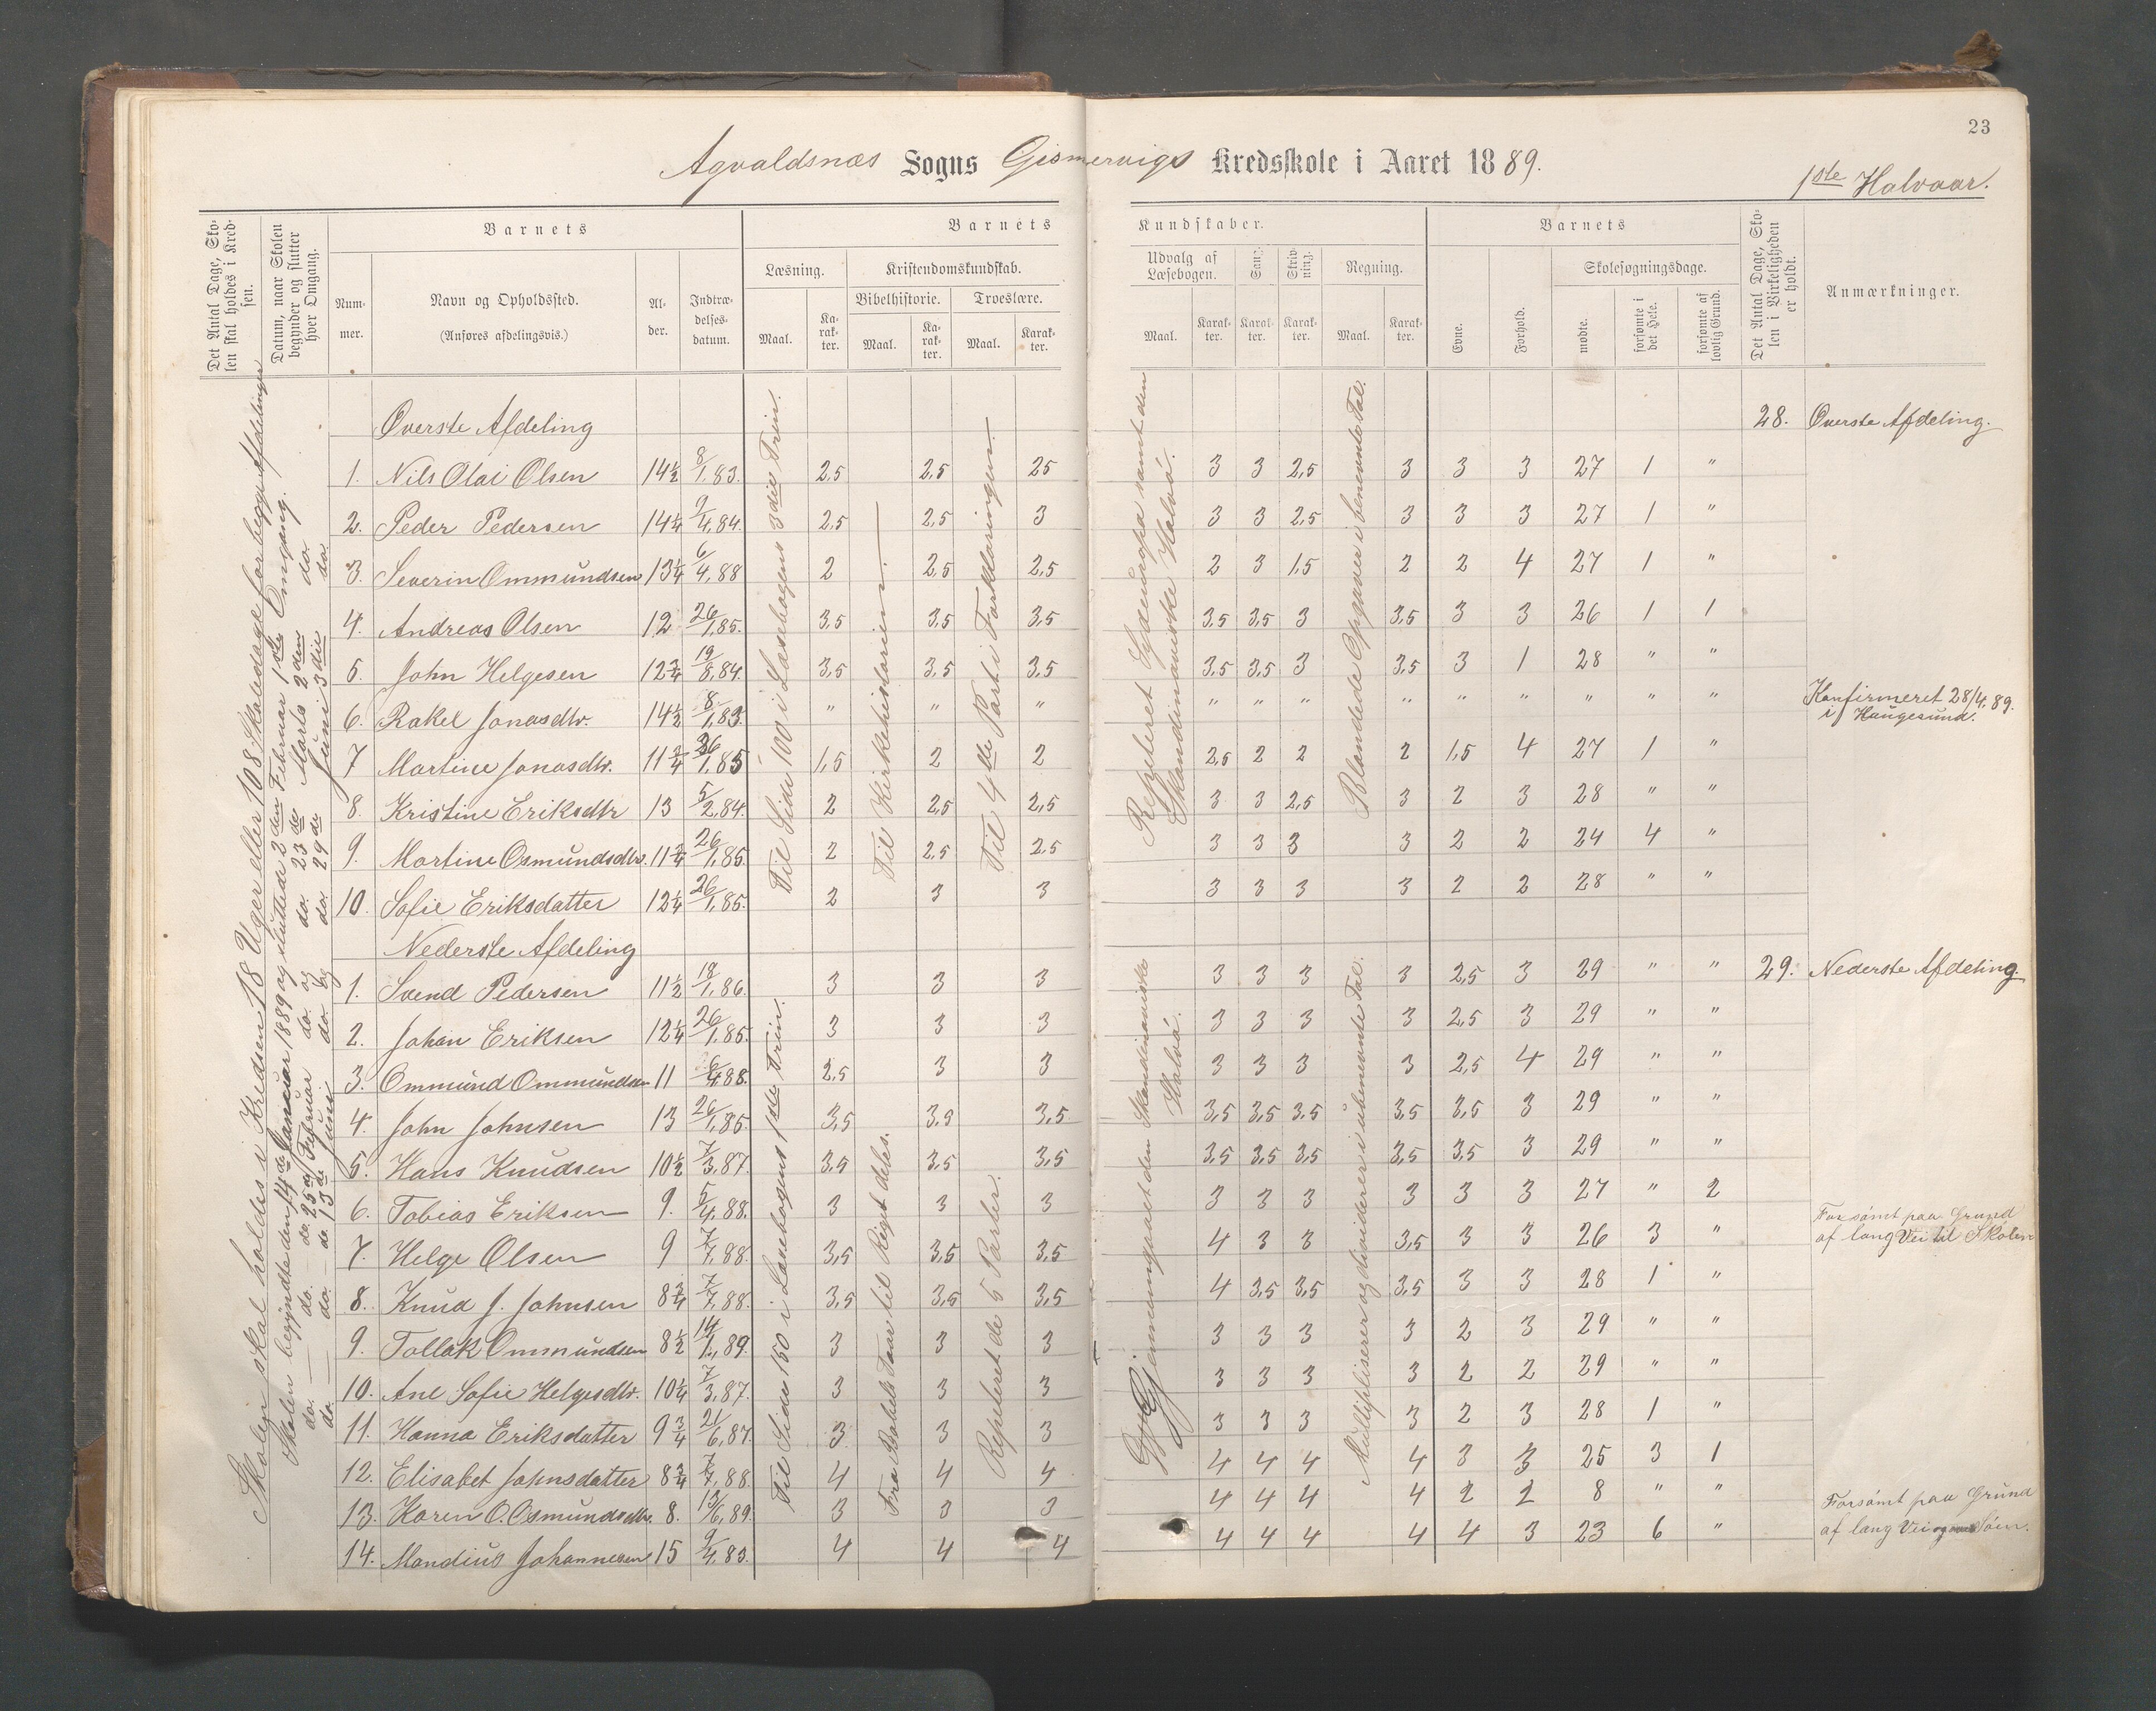 23
Agvaldsnæs Sogns Gismervigs Kredsskole i Aaret 1889.
1ste Halvaar.
Det Antal Dage, Skolen skal holdes i Kredsen.
Datum, naar Skolen begynder og slutter hver Omgang.
Barnets
Barnets Kundskaber.
Barnets
Det Antal Dage, Skolen i Virkeligheden er holdt.
Anmærkninger.
Nummer.
Navn og Opholdssted.
(Anføres afdelingsvis.)
Alder.
Indtrædelsesdatum.
Læsning.
Kristendomskundskab.
Bibelhistorie.
Troeslære.
Udvalg af Læsebogen.
Sang.
Skrivning.
Regning.
Evne.
Forhold.
Skolesøgningsdage.
mødte.
forsømte i det Hele.
forsømte af lovlig Grund.
Maal. Karakter. Maal. Karakter. Maal. Karakter. Maal. Karakter. Karakter. Karakter. Maal. Karakter.
Skolen skal holdes i Kredsen 18 Uger eller 108 Skoledage for begge Afdelinger
Skolen begyndte den 14de Januar 1889 og sluttede 2den Februar 1ste Omgang.
do. do. 25de Februar do. og do. 23de Marts 2den do.
do. do. de 13de Juni do. og do. 29de Juni 3die do.
Til Side 100 i Læsebogens 3die Trin.
Til Kirkehistorien
Til 4de Part i Forklaringen
Repeteret Sydeuropa samt den Skandinaviske Halvö.
Blandede Opgaver i benevnte Tal.
Øverste Afdeling 28. Øverste Afdeling.
1. Nils Olai Olsen 14½ 8/1,83. 2,5 2,5 25 3 3 2,5 3 3 3 27 1 "
2. Peder Pedersen 14¼ 9/4,84. 2,5 2,5 3 3 3 2,5 3 3 3 27 1 "
3. Severin Ommundsen 13¼ 6/4,88 2 2,5 2,5 2 3 1,5 2 2 4 27 1 "
4. Andreas Olsen 12 26/1,85. 3,5 3,5 3,5 3,5 3,5 3 3,5 3 3 26 1 1
5. John Helgesen 12¾ 19/8,84. 3,5 3,5 3,5 3,5 3,5 3 3,5 3 1 28 " "
6. Rakel Jonasdtr. 14½ 8/1,83. " " " " " " " " " " " " Konfirmeret 28/4.89. i Haugesund.
7 Martine Jonasdtr. 11¾ 26/1,85 1,5 2 2 2,5 2 2 2 1,5 4 27 1 "
8. Kristine Eriksdtr 13 5/2,84. 2 2,5 2,5 3 3 2,5 3 2 3 28 " "
9. Martine Osmundsdtr. 11¾ 26/1,85. 2 2,5 2,5 3 3 3 3 2 2 24 4 "
10. Sofie Eriksdatter 12¼ 26/1,85. 2 3 3 3 3 3 3 2 2 28 " "
Til Side 150 i Læsebogens 1ste Trin.
Fra Babels Taarn til Riget deles.
Repeteret de 5 Parter.
Gjennemgaaet den Skandinaviske Halvö.
Multipliserer og dividerer i ubenevnte Tal.
Nederste Afdeling
1. Svend Pedersen 11½ 18/1,86. 3 3 3 3 3 3 3 2,5 3 29 " " 29. Nederste Afdeling.
2. Johan Eriksen 12¼ 26/1,85. 3 3 3 3 3 3 3 2,5 3 29 " "
3. Ommund Ommundsen 11 6/4,88. 2,5 3 3 3 3 3 3 2,5 4 29 " "
4. John Johnsen 13 26/1,85. 3,5 3,5 3,5 3,5 3,5 3,5 3,5 3,5 3 29 " "
5. Hans Knudsen 10½ 7/3,87. 3,5 3,5 3,5 3,5 3,5 3,5 3,5 3,5 3 29 " "
6. Tobias Eriksen 9. 5/4,88. 3 3 3 3 3 3 3 3 3 27 " 2
7. Helge Olsen 9 7/7,88. 3,5 3,5 3,5 4 3 3 3,5 3 3 26 3 " Forsömt paa Grund af lang Vei til Skolen
8. Knud J. Johnsen 8¾ 7/7,88. 3,5 3,5 3,5 4 3,5 3,5 3,5 3 3 28 1 "
9. Tollak Ommundsen 8½ 14/1,89. 3 3 3 3 3 3 3 2 3 29 " "
10. Ane Sofie Helgesdtr. 10¼ 7/3,87. 3 3 3 3 3 3 3 2 2 29 " "
11. Hanna Eriksdatter 9¾ 21/6,87. 3 3 3 3 3 3 3 2 3 28 1 "
12. Elisabet Johnsdatter 8¾ 7/7,88. 4 4 4 4 4 4 4 3 3 25 3 1
13. Karen O. Osmundsdtr. 8. 13/6,89. 3 3 3 4 4 4 4 2 2 8 " "
14. Mandius Johannesen 15 9/4,83. 4 4 4 4 4 4 4 4 3 23 6 " Forsömt paa Grund af lang Vei